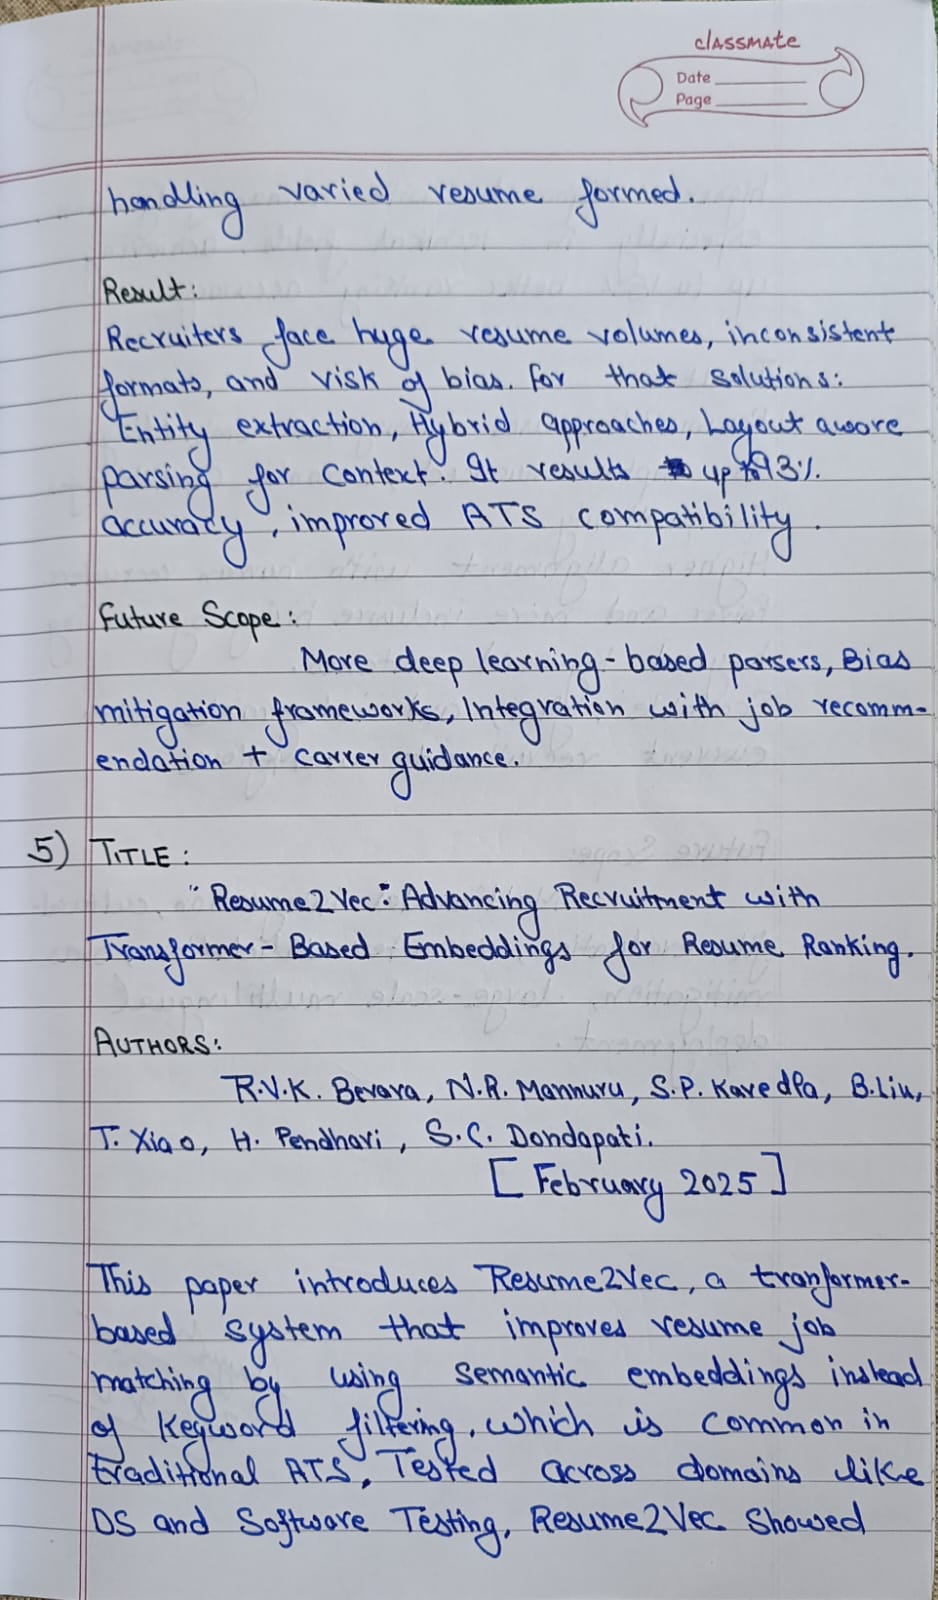 classmate
Date
Page
handling varied resume formed.
Result:
Recruiters face huge resume volumes, inconsistent
formats, and risk of bias. for that solutions:
Entity extraction, Hybrid approaches, Layout aware
parsing for context. It results up to 93%.
accuracy, improved ATS compatibility.
Future Scope:
More deep learning-based parsers, Bias
mitigation frameworks, Integration with job recomm-
endation + Carrer guidance.
5) TITLE:
"Resume2Vec: Advancing Recruitment with
Transformer-Based Embeddings for Resume Ranking.
AUTHORS:
R.V.K. Bevara, N.R. Mannuru, S.P. Karedla, B.Liu,
T. Xiao, H. Pendhari, S.C. Dondapati.
[February 2025]
This paper introduces Resume2Vec, a tranformer-
based system that improves resume job
matching by using semantic embeddings instead
of Keyword filtering, which is common in
traditional ATS, Tested across domains like
DS and Software Testing, Resume2Vec Showed